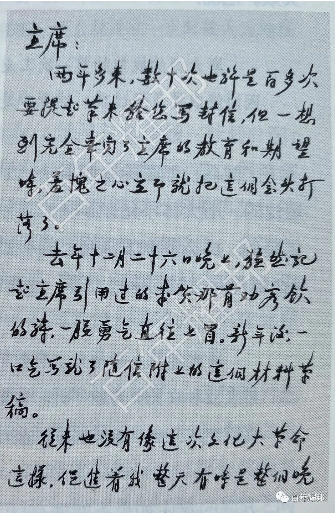 主席：
两年多来，数十次也许是百多次
要提起笔来给您写封信，但一想
到完全辜负了主席的教育和期望
时，羞愧之心立即就把這個念头打
消了。
去年十二月二十六日晚上，猛然记
起主席引用过的朱笑那首劝彦钦
的詩，一股勇气直往上冒。新年深一
口气写就了随信附上的這個材料草
稿。
從来也没有像這次文化大革命
這樣，促進着我整天有時是整個晚
百年旭邦